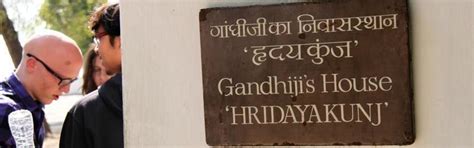 गांधीजी का निवासस्थान
'हृदय कुंज'
Gandhiji's House
'HRIDAYAKUNJ'